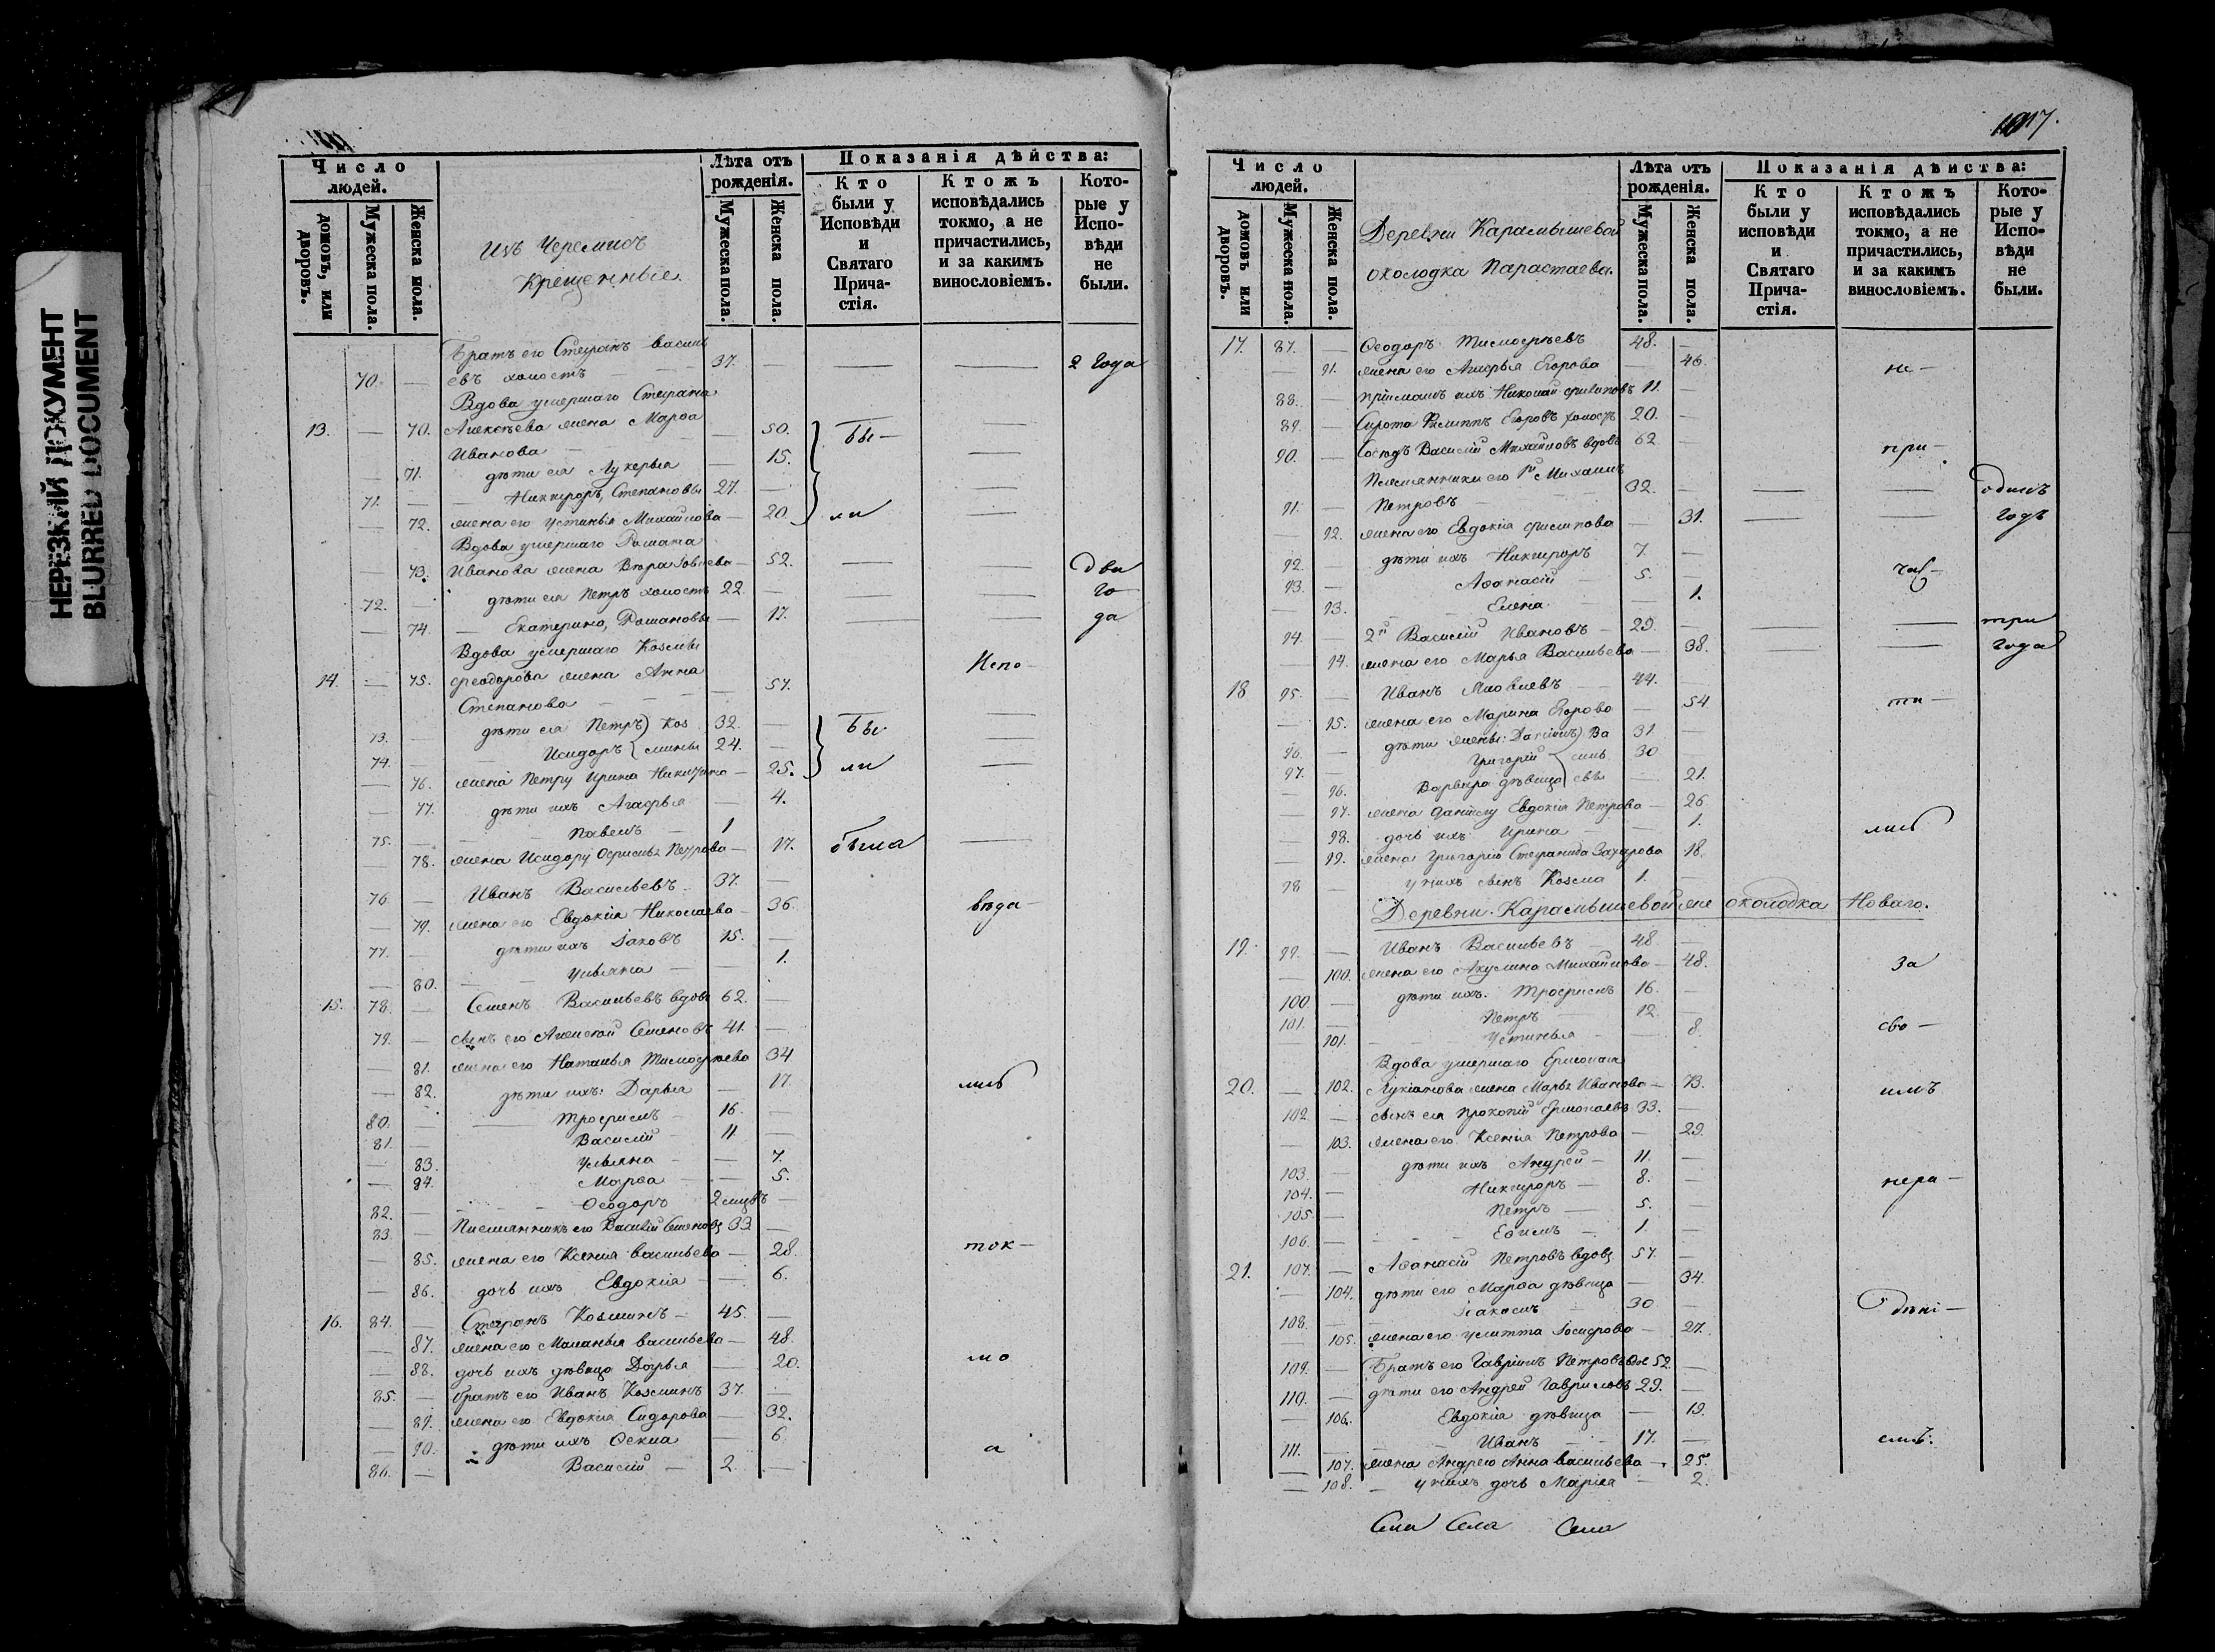 НЕРЕЗКИЙ ДОКУМЕНТ
BLURRED DOCUMENT
Число людей.
домовъ, или дворовъ.
Мужеска пола.
Женска пола.
Изъ Черемисъ
Крещенные.
Лѣта отъ рожденія.
Мужеска пола.
Женска пола.
Показанія дѣйства:
Кто были у Исповѣди и Святаго Причастія.
Ктожъ исповѣдались токмо, а не причастились, и за какимъ винословіемъ.
Которые у Исповѣди не были.
Братъ его Стефанъ Василь
70. — евъ холостъ — 37. — — — 2 года
Вдова умершаго Стефана
13. — 70. Алексѣева жена Марѳа
Иванова — 50. Бы —
— 71. дѣти ея Лукерья — 15. —
71. — Никифоръ, Степановы 27. — —
— 72. жена его Устинья Михайлова — 20. ли —
Вдова умершаго Романа
— 73. Иванова жена Вѣра Іовлева — 52. — — Два
72. — дѣти ея Петръ холостъ 22. — — — го
— 74. — Екатерина, Романовы — 17. — — да
Вдова умершаго Козмы
14. — 75. Ѳеодорова жена Анна Испо —
Степанова — 57.
73. — дѣти ея Петръ) Коз 32. — Бы —
74. — Исидоръ мины 24. — —
— 76. жена Петру Ирина Никитина — 25. ли —
— 77. дѣти ихъ Агафья — 4.
75. — Павелъ — 1
— 78. жена Исидору Петрова — 17. была —
76. — Иванъ Васильевъ — 37. —
— 79. жена его Евдокія Николаева — 36. вѣда —
77. — дѣти ихъ Іаковъ 15. —
— 80. — Ульяна — — 1.
15. 78. — Семенъ Васильевъ вдовъ 62. —
79. — сынъ его Алексѣй Семеновъ 41. —
— 81. жена его Наталья Тимофѣева 34
— 82. дѣти ихъ: Дарья — 17. лись
80. — Трофимъ — 16. —
81. — Василій — 11 —
— 83. Ульяна — — 7.
— 84. Марѳа — — 5.
82. — Ѳеодоръ 2 мцвъ —
83. — Племянникъ его Василій Семеновъ 33 —
— 85. жена его Ксенія Васильева — 28. ток —
— 86. дочь ихъ Евдокія — — 6.
16. 84. — Стефанъ Козминъ — 45. —
— 87. жена его Маланья Васильева — 48.
— 88. дочь ихъ дѣвица Дарья — 20. мо
85. — братъ его Иванъ Козминъ 37. —
— 89. жена его Евдокія Сидорова — 32.
— 90. дѣти ихъ Ѳекла — 6. а
86. — Василій — 2. —
1017.
Число людей.
домовъ или дворовъ.
Мужеска пола.
Женска пола.
Деревни Карамышевой
околодка Парастаева.
Лѣта отъ рожденія.
Мужеска пола.
Женска пола.
Показанія дѣйства:
Кто были у исповѣди и Святаго Причастія.
Ктожъ исповѣдались токмо, а не причастились, и за какимъ винословіемъ.
Которые у Исповѣди не были.
17. 87. — Ѳеодоръ Тимофѣевъ 48. —
— 91. жена его Агафья Егорова — 46. не —
88. — пріймышъ ихъ Николай Филиповъ 11.
89. — Сирота Филиппъ Егоровъ холостъ 20. —
90. — Сосѣдъ Василій Михайловъ вдовъ 62 — при —
Племянники его 1й Михаилъ
91. — Петровъ — 32. — — — одинъ
— 92. жена его Евдокія Филипова — 31. — — годъ
92. — дѣти ихъ Никифоръ 7. —
93. — Аѳанасій — 5. — час —
— 93. Елена — — 1.
94. — 2й Василій Ивановъ — 29. — — — три
— 94. жена его Марья Васильева — 38. — — года
18 95. — Иванъ Яковлевъ — 44. —
— 95. жена его Марина Егорова — 54 ти —
96. — дѣти жены: Даніилъ) Ва 31. —
97. — Григорій силь 30
— 96. Варвара дѣвица евы — 21.
— 97. жена Даніилу Евдокія Петрова — 26
— 98. дочь ихъ Ирина — — 1. лись
— 99. жена Григорію Степанида Захарова 18.
98 — у нихъ сынъ Козма 1. —
Деревни Карамышевой же околодка Новаго.
19. 99. — Иванъ Васильевъ — 48. —
— 100. жена его Акулина Михайлова — 48. За
100. — дѣти ихъ: Трофимъ 16. —
101. — Петръ — 12. —
— 101. Устинья — — 8. сво —
Вдова умершаго Ермолая
20. — 102. Лукіанова жена Марья Иванова — 73. имъ
102 — сынъ ея Прокопій Ермолаевъ 33. —
— 103. жена его Ксенія Петрова — 29.
103. — дѣти ихъ Андрей — 11. —
104. — Никифоръ — 8. — нера —
105. — Петръ — 5. —
106. — Еѳимъ — 1. —
21. 107. — Аѳанасій Петровъ вдовъ 57. —
— 104. дѣти его Марѳа дѣвица — 34.
108. — 30. — дѣні —
— 105. жена его Улитта Іосифова — 27.
109. — Братъ его Гавріилъ Петровъ 52. —
110. — дѣти его Андрей Гавриловъ 29. —
— 106. Евдокія дѣвица — 19.
111. — Иванъ — 17. — емъ.
— 107. жена Андрею Анна Васильева — 25.
— 108. — у нихъ дочь Марія — 2.
Села Села